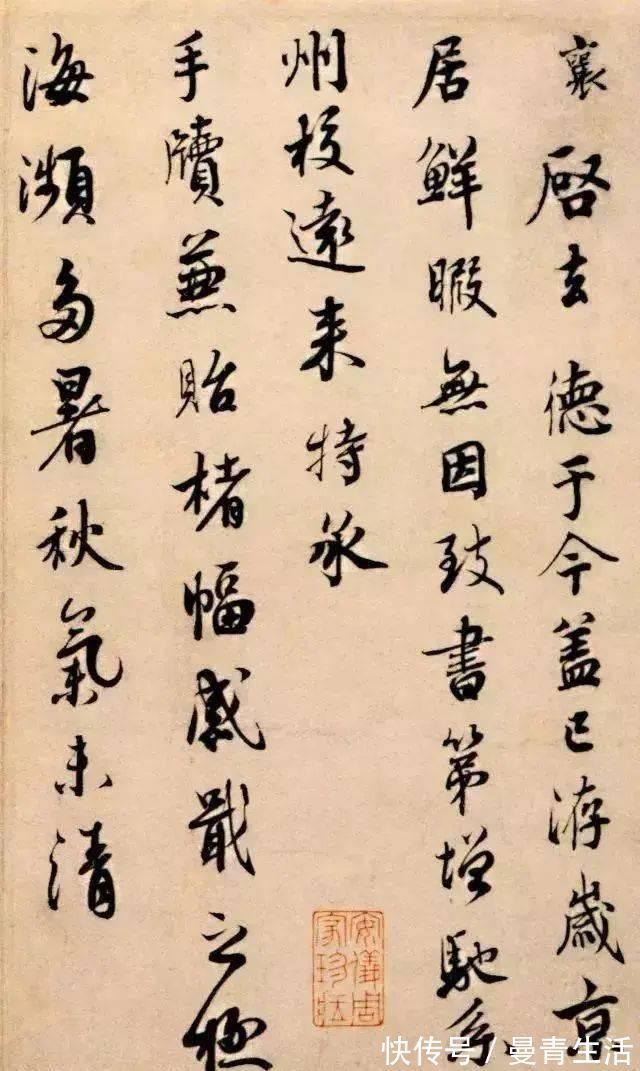 襄啓去德于今盖已洊歲京
居鮮暇無因致書第增馳系
州校遠來特承
手牘兼貽楮幅感戢之極
海瀕多暑秋氣未清
安儀周家珍藏
快传号/曼青生活